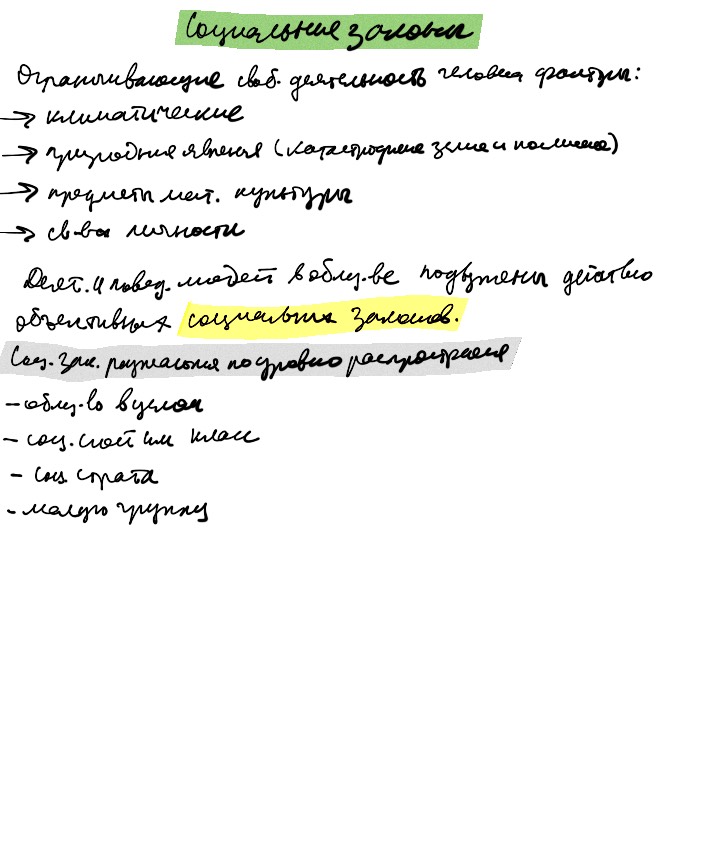 Социальные законы
Ограничивающие своб. деятельность человека факторы:
→ климатические
→ природные явления (катастрофы земли и космоса)
→ предметы мат. культуры
→ св-ва личности
Деят. и повед. людей в общ-ве подвержены действию
объективных социальных законов.
Соц. зак. различаются по уровню распространения
- общ-во в целом
- соц. слой или класс
- соц. страта
- малую группу